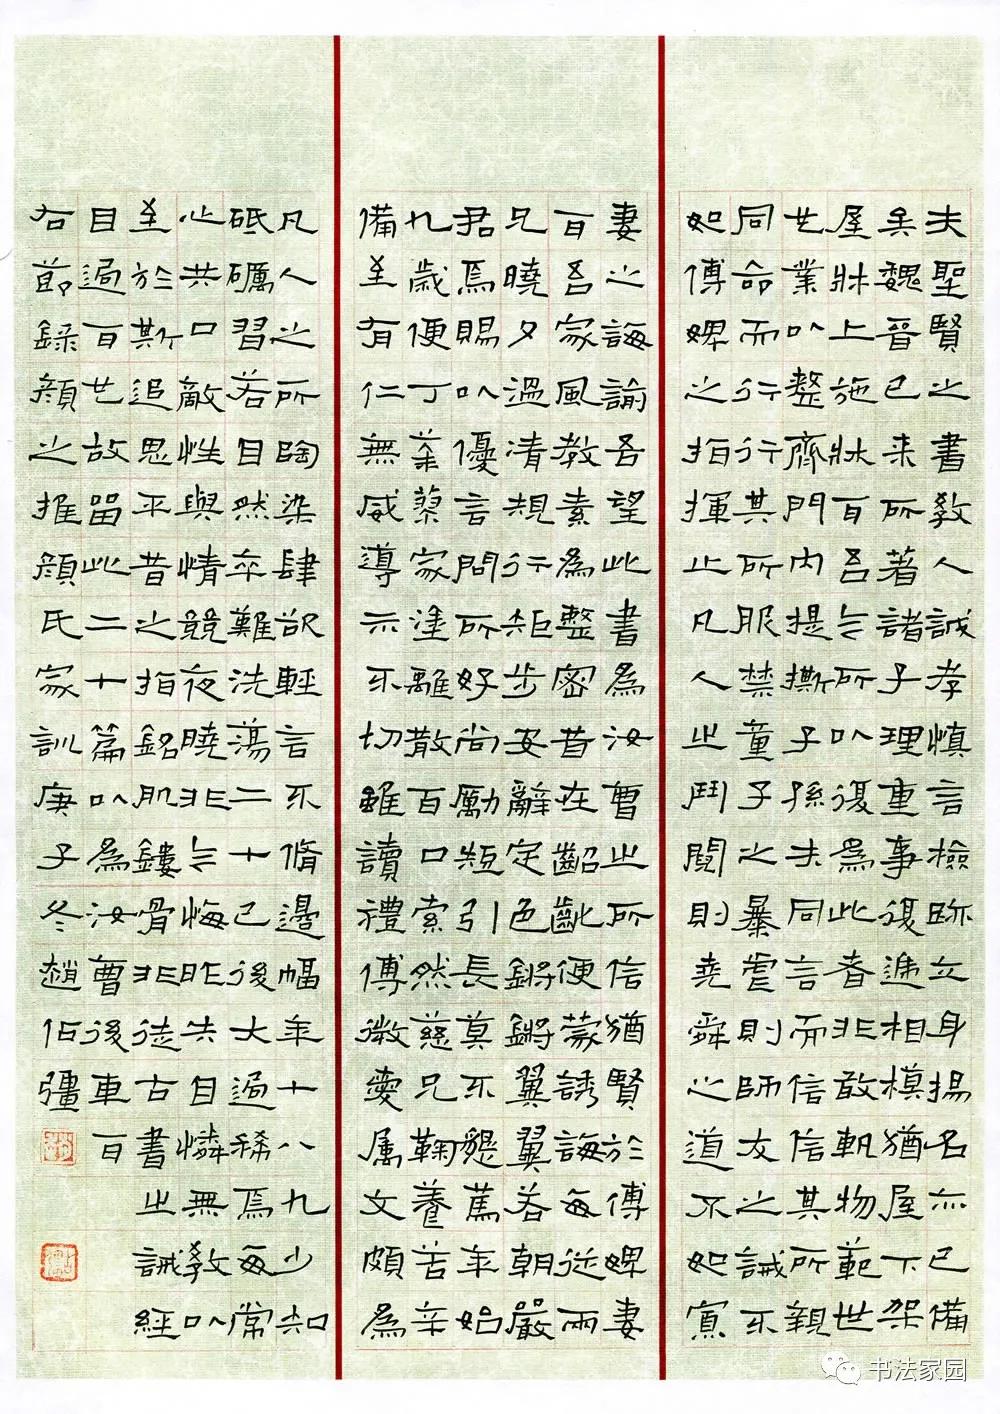 夫聖賢之書教人誠孝慎言檢跡立身揚名亦已備
矣魏晉已来所著諸子理重事復遞相模猶屋下架
屋牀上施牀耳吾今所以復為此者非敢軌物範世
也業以整齊門內提撕子孫夫同言而信信其所親
同命而行行其所服禁童子之暴虐則師友之誡不
如傅婢之指揮止凡人之鬥鬩則堯舜之道不如寡
妻之誨諭吾望此書為汝曹之所信猶賢於傅婢妻
耳吾家風教素為整密昔在齠齔便蒙誘誨每從兩
兄曉夕溫清規行矩步安辭定色鏘鏘翼翼若朝嚴
君焉賜以優言問所好尚勵短引長莫不懇篤年始
九歲便丁荼蓼家塗離散百口索然慈兄鞠養苦辛
備至有仁無威導示不切雖讀禮傅微愛属文頗為
凡人之所陶染肆欲輕言不脩邊幅年十八九少知
砥礪習若自然卒難洗蕩二十已後大過稀焉每常
心共口敵性與情競夜曉非今悔昨失自憐無教以
至於斯追思平昔之指銘肌鏤骨非徒古書之誡經
目過耳也故留此二十篇以為汝曹後車耳
右節録顔之推顔氏家訓庚子冬趙佔彊
书法家园